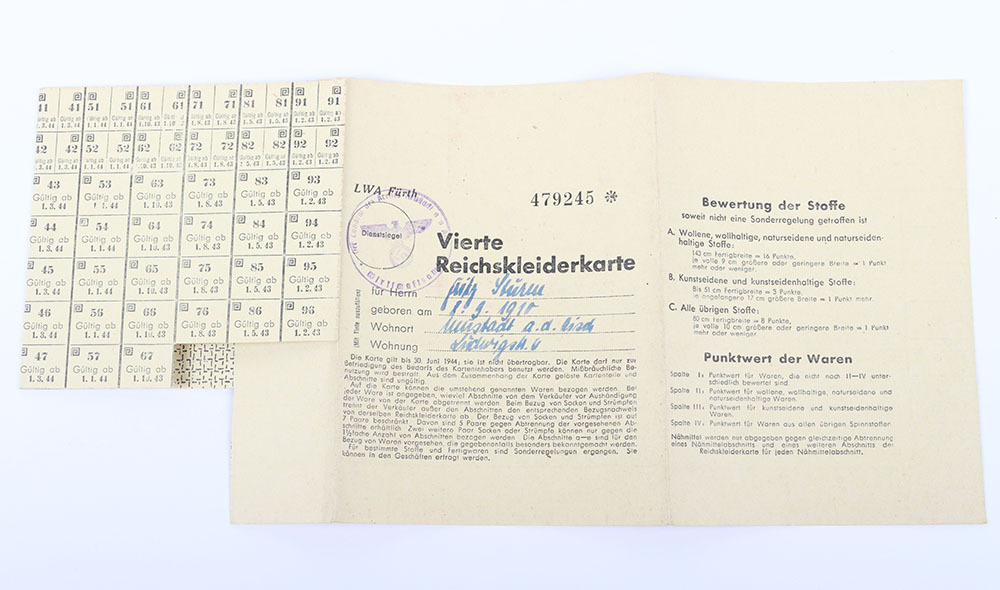 41 41 51 51 61 61 71 71 81 81 91 91
1. 3. 44 1. 1. 44 1. 10. 43 1. 8. 43 1. 5. 43 1. 2. 43
42 42 52 52 62 62 72 72 82 82 92 92
1. 3. 44 1. 1. 44 1. 10. 43 1. 8. 43 1. 5. 43 1. 2. 43
43 53 63 73 83 93
Gültig ab Gültig ab Gültig ab Gültig ab Gültig ab Gültig ab
1. 3. 44 1. 1. 44 1. 10. 43 1. 8. 43 1. 5. 43 1. 2. 43
44 54 64 74 84 94
Gültig ab Gültig ab Gültig ab Gültig ab Gültig ab Gültig ab
1. 3. 44 1. 1. 44 1. 10. 43 1. 8. 43 1. 5. 43 1. 2. 43
45 55 65 75 85 95
Gültig ab Gültig ab Gültig ab Gültig ab Gültig ab Gültig ab
1. 3. 44 1. 1. 44 1. 10. 43 1. 8. 43 1. 5. 43 1. 2. 43
46 56 66 76 86 96
Gültig ab Gültig ab Gültig ab Gültig ab Gültig ab Gültig ab
1. 3. 44 1. 1. 44 1. 10. 43 1. 8. 43 1. 5. 43 1. 2. 43
47 57 67
Gültig ab Gültig ab Gültig ab
1. 3. 44 1. 1. 44 1. 10. 43
LWA Fürth
479245 *
Dienstsiegel
Vierte
Reichskleiderkarte
(Mit Tinte ausfüllen)
für Herrn Fritz
geboren am 1. 9. 1910
Wohnort Neustadt a. d. Aisch
Wohnung Ludwigstr. 6
Die Karte gilt bis 30. Juni 1944; sie ist nicht übertragbar. Die Karte darf nur zur
Befriedigung des Bedarfs des Karteninhabers benutzt werden. Mißbräuchliche Be-
nutzung wird bestraft. Aus dem Zusammenhang der Karte gelöste Kartenteile und
Abschnitte sind ungültig.
Auf die Karte können die umstehend genannten Waren bezogen werden. Bei
jeder Ware ist angegeben, wieviel Abschnitte von dem Verkäufer vor Aushändigung
der Ware von der Karte abgetrennt werden. Beim Bezug von Socken und Strümpfen
trennt der Verkäufer außer den Abschnitten den entsprechenden Bezugsnachweis
von derselben Reichskleiderkarte ab. Der Bezug von Socken und Strümpfen ist auf
7 Paare beschränkt. Davon sind 5 Paare gegen Abtrennung der vorgesehenen Ab-
schnitte erhältlich. Zwei weitere Paar Socken oder Strümpfe können nur gegen die
1½fache Anzahl von Abschnitten bezogen werden. Die Abschnitte a—e sind für den
Bezug von Waren vorgesehen, die gegebenenfalls besonders bekanntgemacht werden.
Für bestimmte Stoffe und Fertigwaren sind Sonderregelungen ergangen. Sie
können in den Geschäften erfragt werden.
Bewertung der Stoffe
soweit nicht eine Sonderregelung getroffen ist
A. Wollene, wollhaltige, naturseidene und naturseiden-
haltige Stoffe:
143 cm Fertigbreite = 16 Punkte,
je volle 9 cm größere oder geringere Breite = 1 Punkt
mehr oder weniger.
B. Kunstseidene und kunstseidenhaltige Stoffe:
Bis 51 cm Fertigbreite = 5 Punkte,
je angefangene 17 cm größere Breite = 1 Punkt mehr.
C. Alle übrigen Stoffe:
80 cm Fertigbreite = 8 Punkte,
je volle 10 cm größere oder geringere Breite = 1 Punkt
mehr oder weniger.
Punktwert der Waren
Spalte I: Punktwert für Waren, die nicht nach II—IV unter-
schiedlich bewertet sind
Spalte II: Punktwert für wollene, wollhaltige, naturseidene und
naturseidenhaltige Waren.
Spalte III: Punktwert für kunstseidene und kunstseidenhaltige
Waren.
Spalte IV: Punktwert für Waren aus allen übrigen Spinnstoffen.
Nähmittel werden nur abgegeben gegen gleichzeitige Abtrennung
eines Nähmittelabschnitts und eines weiteren Abschnitts der
Reichskleiderkarte für jeden Nähmittelabschnitt.